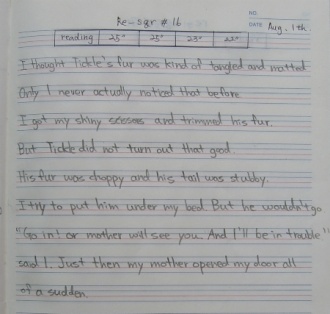 Re-sgr # 16
NO.
DATE Aug. 1th.
reading 25° 25° 25° 22°
I thought Tickle's fur was kind of tangled and matted
Only I never actually noticed that before
I got my shiny scissors and trimmed his fur.
But Tickle did not turn out that good.
His fur was choppy and his tail was stubby.
I try to put him under my bed. But he wouldn't go
"Go in! or mother will see you. And I'll be in trouble"
said I. Just then my mother opened my door all
of a sudden.